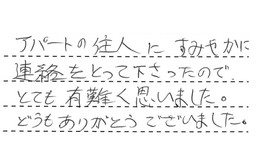 アパートの住人に すみやかに
連絡をとって下さったので、
とても有難く思いました。
どうもありがとうございました。